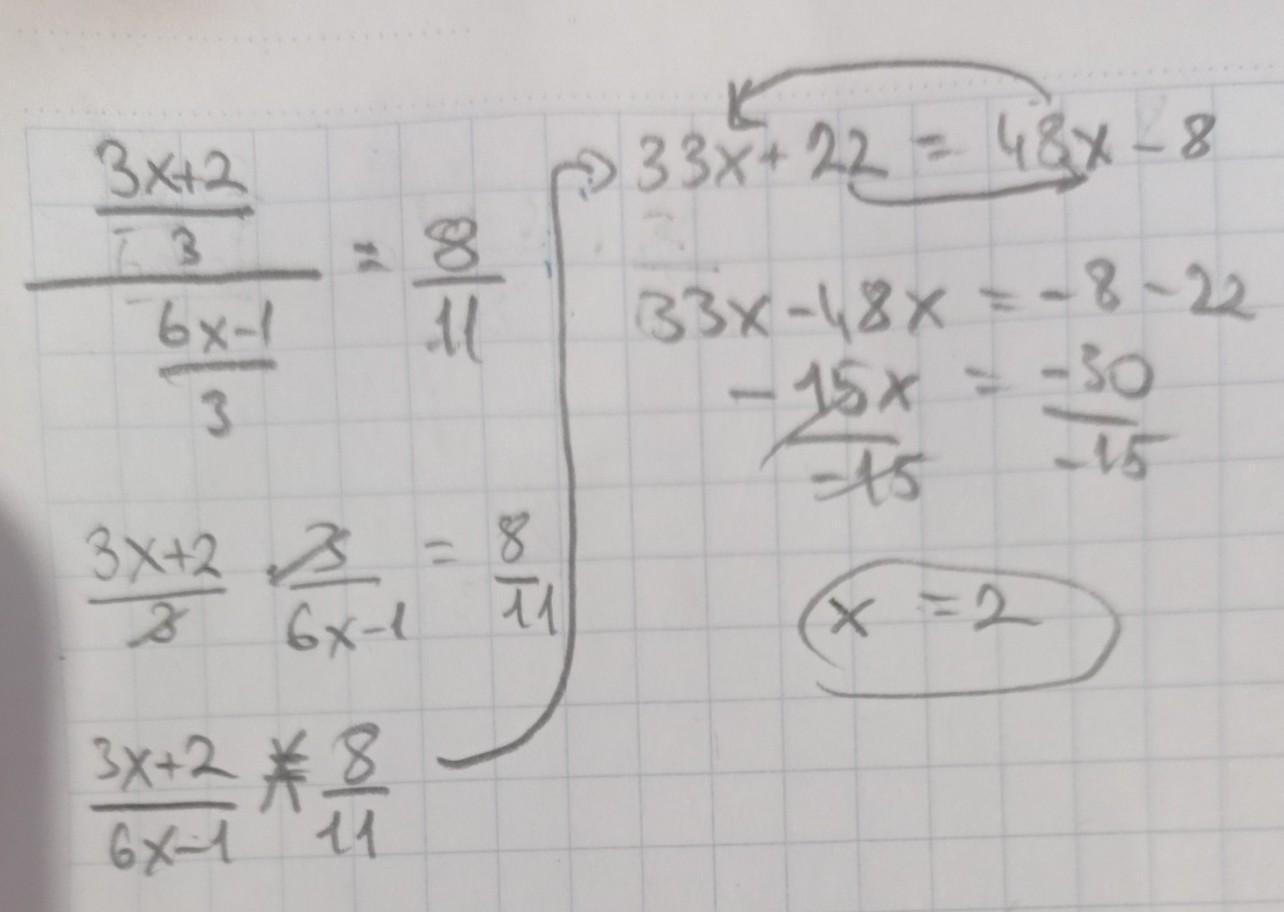 3x+2
3
6x-1
3
= 8
11
3x+2 3 = 8
3 6x-1 11
3x+2 = 8
6x-1 11
33x+22 = 48x-8
33x-48x = -8-22
-15x = -30
-15 -15
x = 2